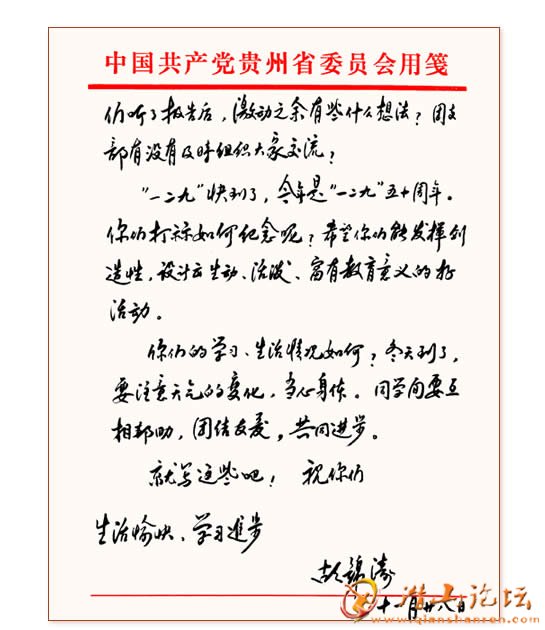 中国共产党贵州省委员会用笺
们听了报告后，激动之余有些什么想法？团支
部有没有及时组织大家交流？
"一二九"快到了，今年是"一二九"五十周年。
你们打算如何纪念呢？希望你们能发挥创
造性，设计出生动、活泼、富有教育意义的好
活动。
你们的学习、生活情况如何？冬天到了，
要注意天气的变化，当心身体。同学间要互
相帮助，团结友爱，共同进步。
就写这些吧！祝你们
生活愉快、学习進步
胡锦涛
十一月廿八日
潜山论坛
www.qianshanren.com